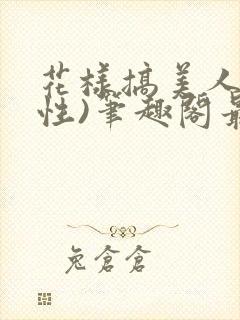 花样搞美人
性)笔趣阁最
兔仓仓